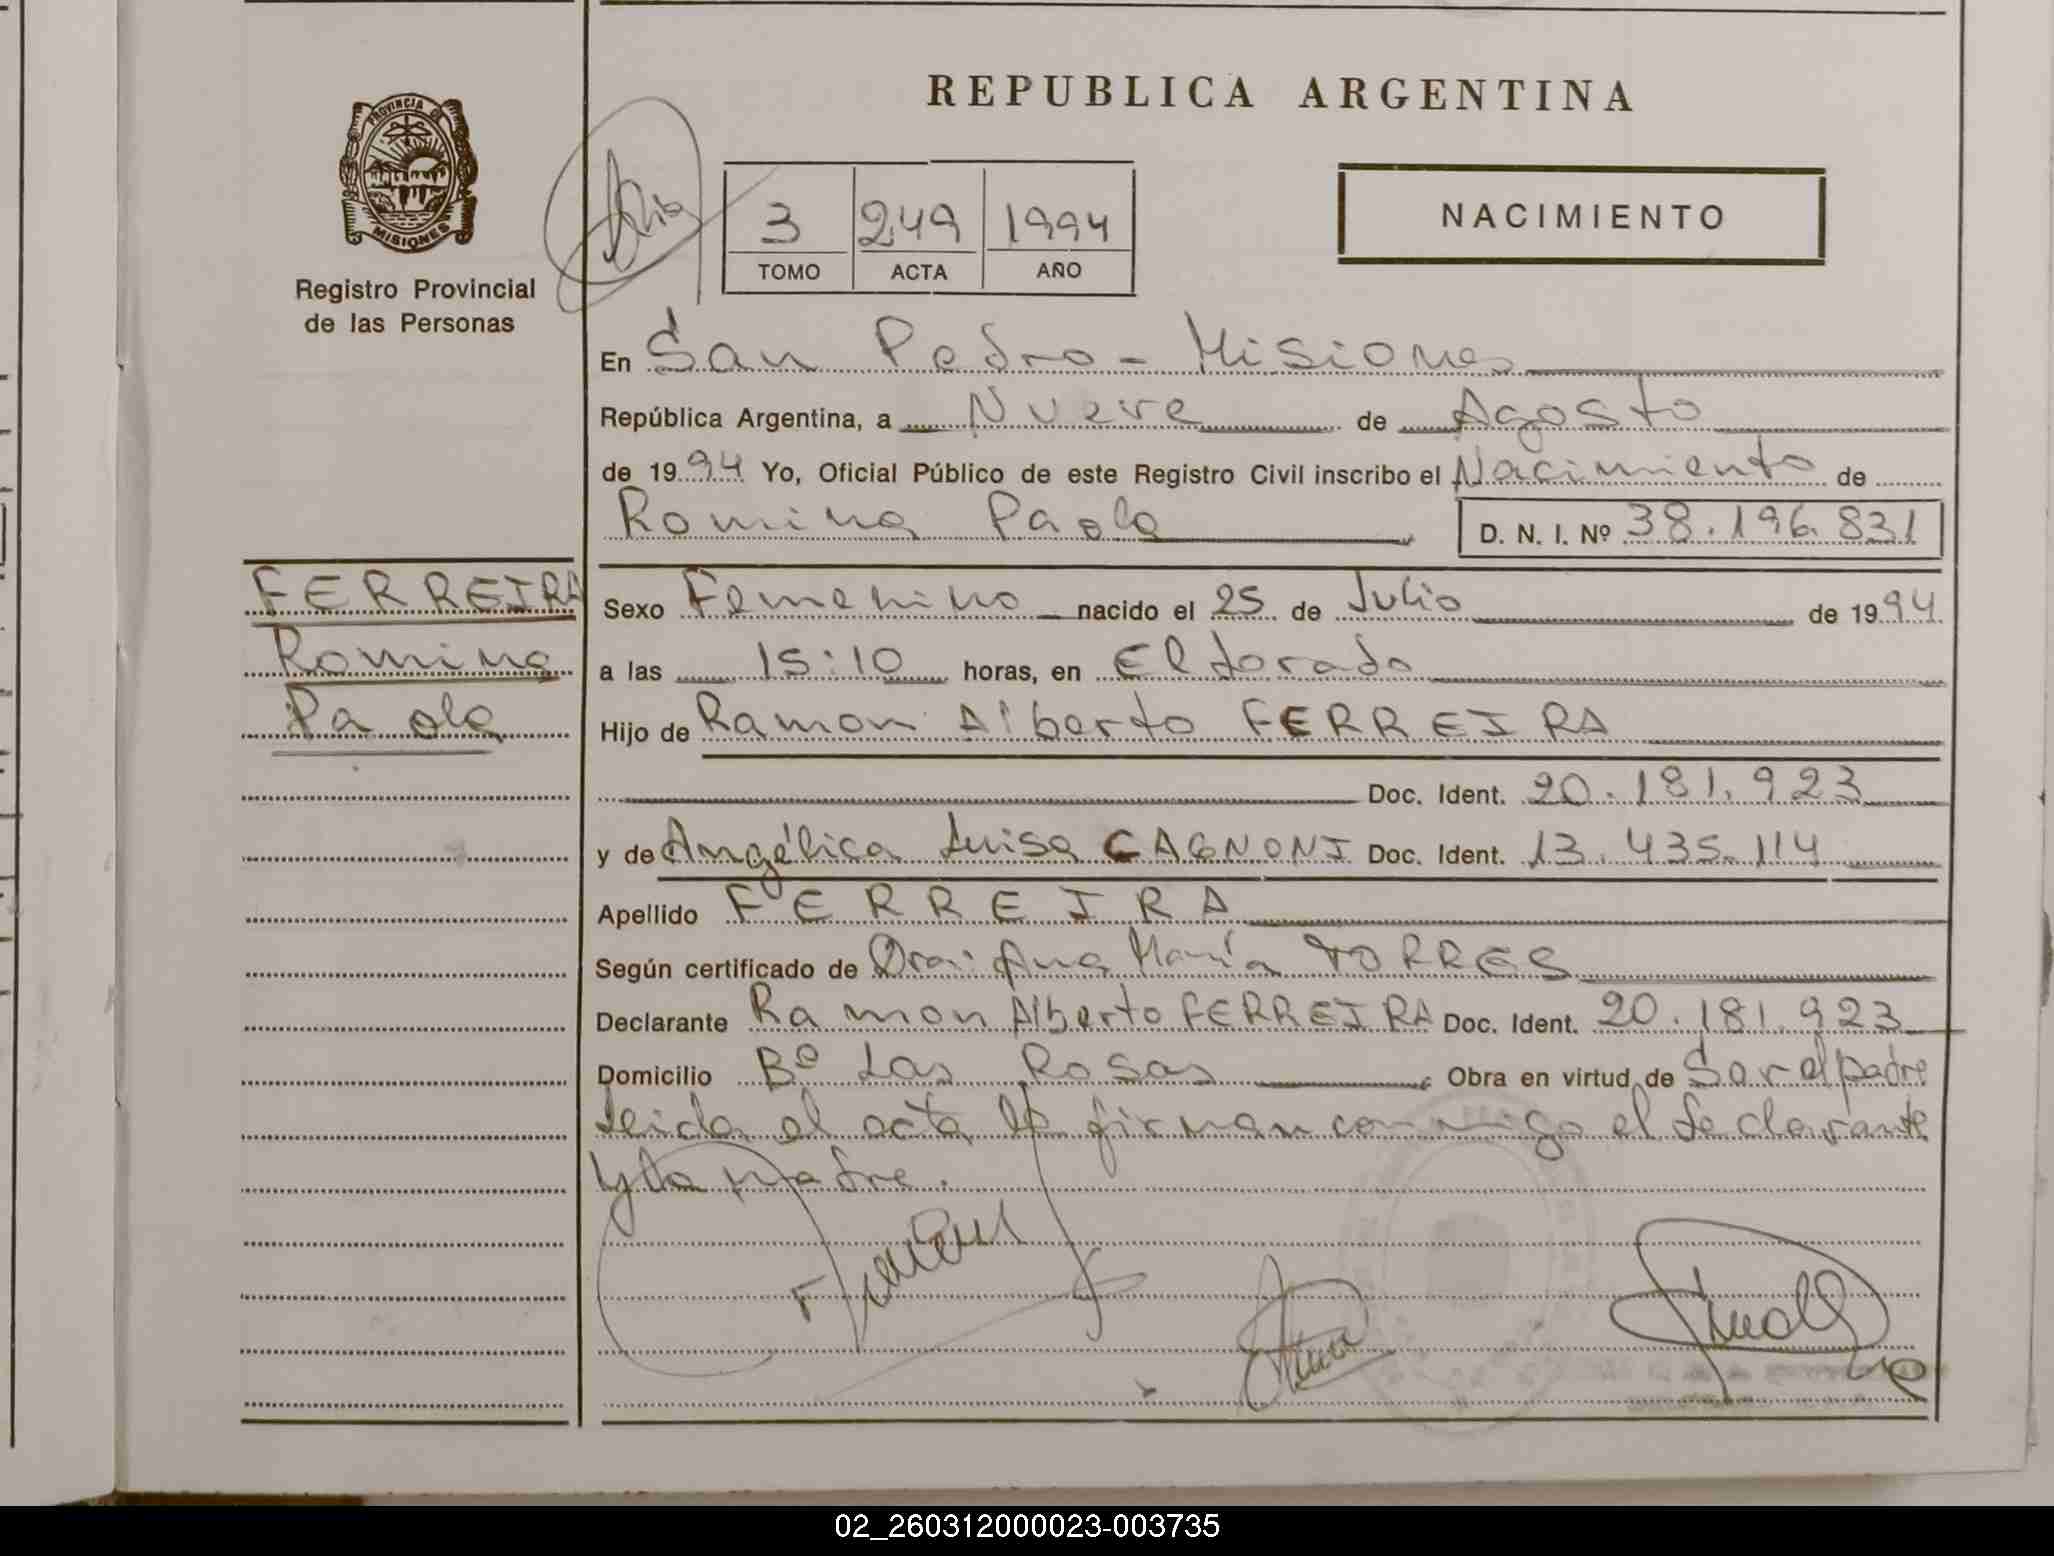 REPUBLICA ARGENTINA
PROVINCIA DE
MISIONES
Registro Provincial
de las Personas
3 249 1994
TOMO ACTA AÑO
NACIMIENTO
En San Pedro - Misiones
República Argentina, a Nueve de Agosto
de 1994 Yo, Oficial Público de este Registro Civil inscribo el Nacimiento de
Romina Paola D. N. I. Nº 38.196.831
FERREIRA
Romina
Paola
Sexo Femenino nacido el 25 de Julio de 1994
a las 15:10 horas, en Eldorado
Hijo de Ramon Alberto FERREIRA
Doc. Ident. 20.181.923
y de Angélica Luisa CAGNONI Doc. Ident. 13.435.114
Apellido FERREIRA
Según certificado de Dra: Ana María TORRES
Declarante Ramon Alberto FERREIRA Doc. Ident. 20.181.923
Domicilio Bº Las Rosas Obra en virtud de Ser el padre
Leida el acta la firman conmigo el declarante
y la madre.
02_260312000023-003735